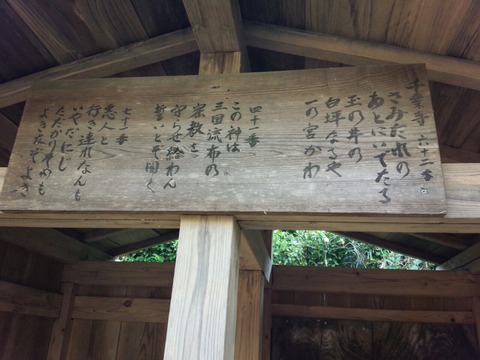 千葉寺 六十二番
さみだれの
あとにいでたる
玉の井の
白坪なるや
一の宮かわ
四十一番
この神は
三国流布の
宗教を
守らせ給わん
誓いとぞ聞く
七十一番
悪人と
行き連れなんも
いやだにし
ただかりそめも
よき友ぞよき